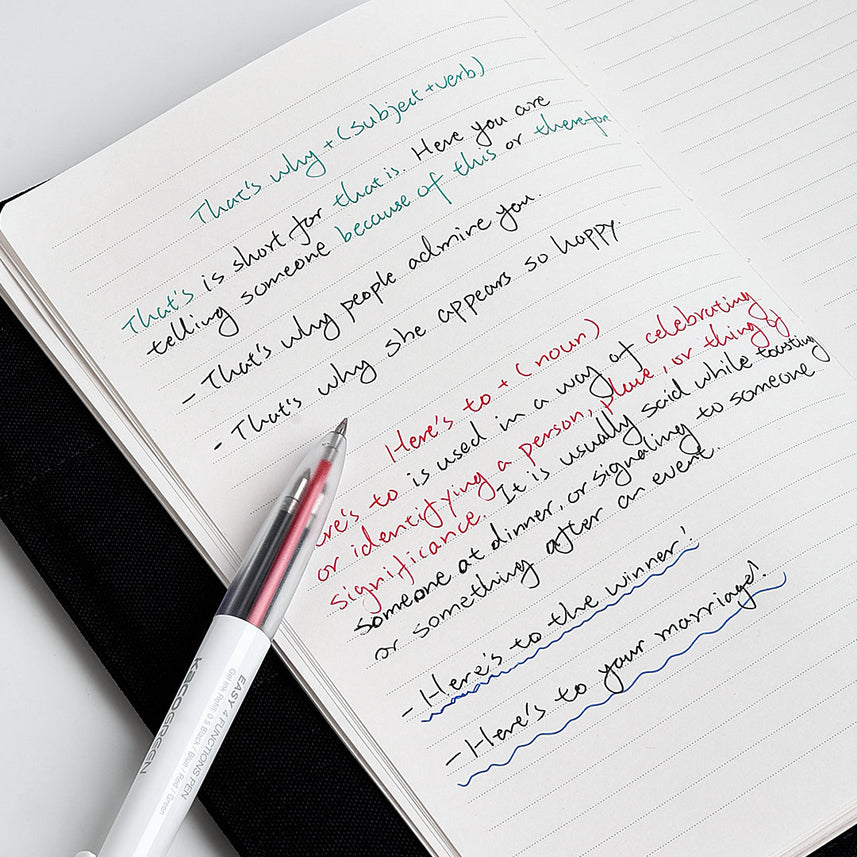 That's why + (subject + verb)
That's is short for that is. Here you are
telling someone because of this or therefore
- That's why people admire you.
- That's why she appears so happy.
Here's to + (noun)
re's to is used in a way of celebrating
or identifying a person, place, or thing of
significance. It is usually said while toasting
someone at dinner, or signaling to someone
or something after an event.
- Here's to the winner!
- Here's to your marriage!
KACOGREEN
EASY 4 FUNCTIONS PEN
Gel Ink Refill: 0.5 Black / Blue / Red / Green